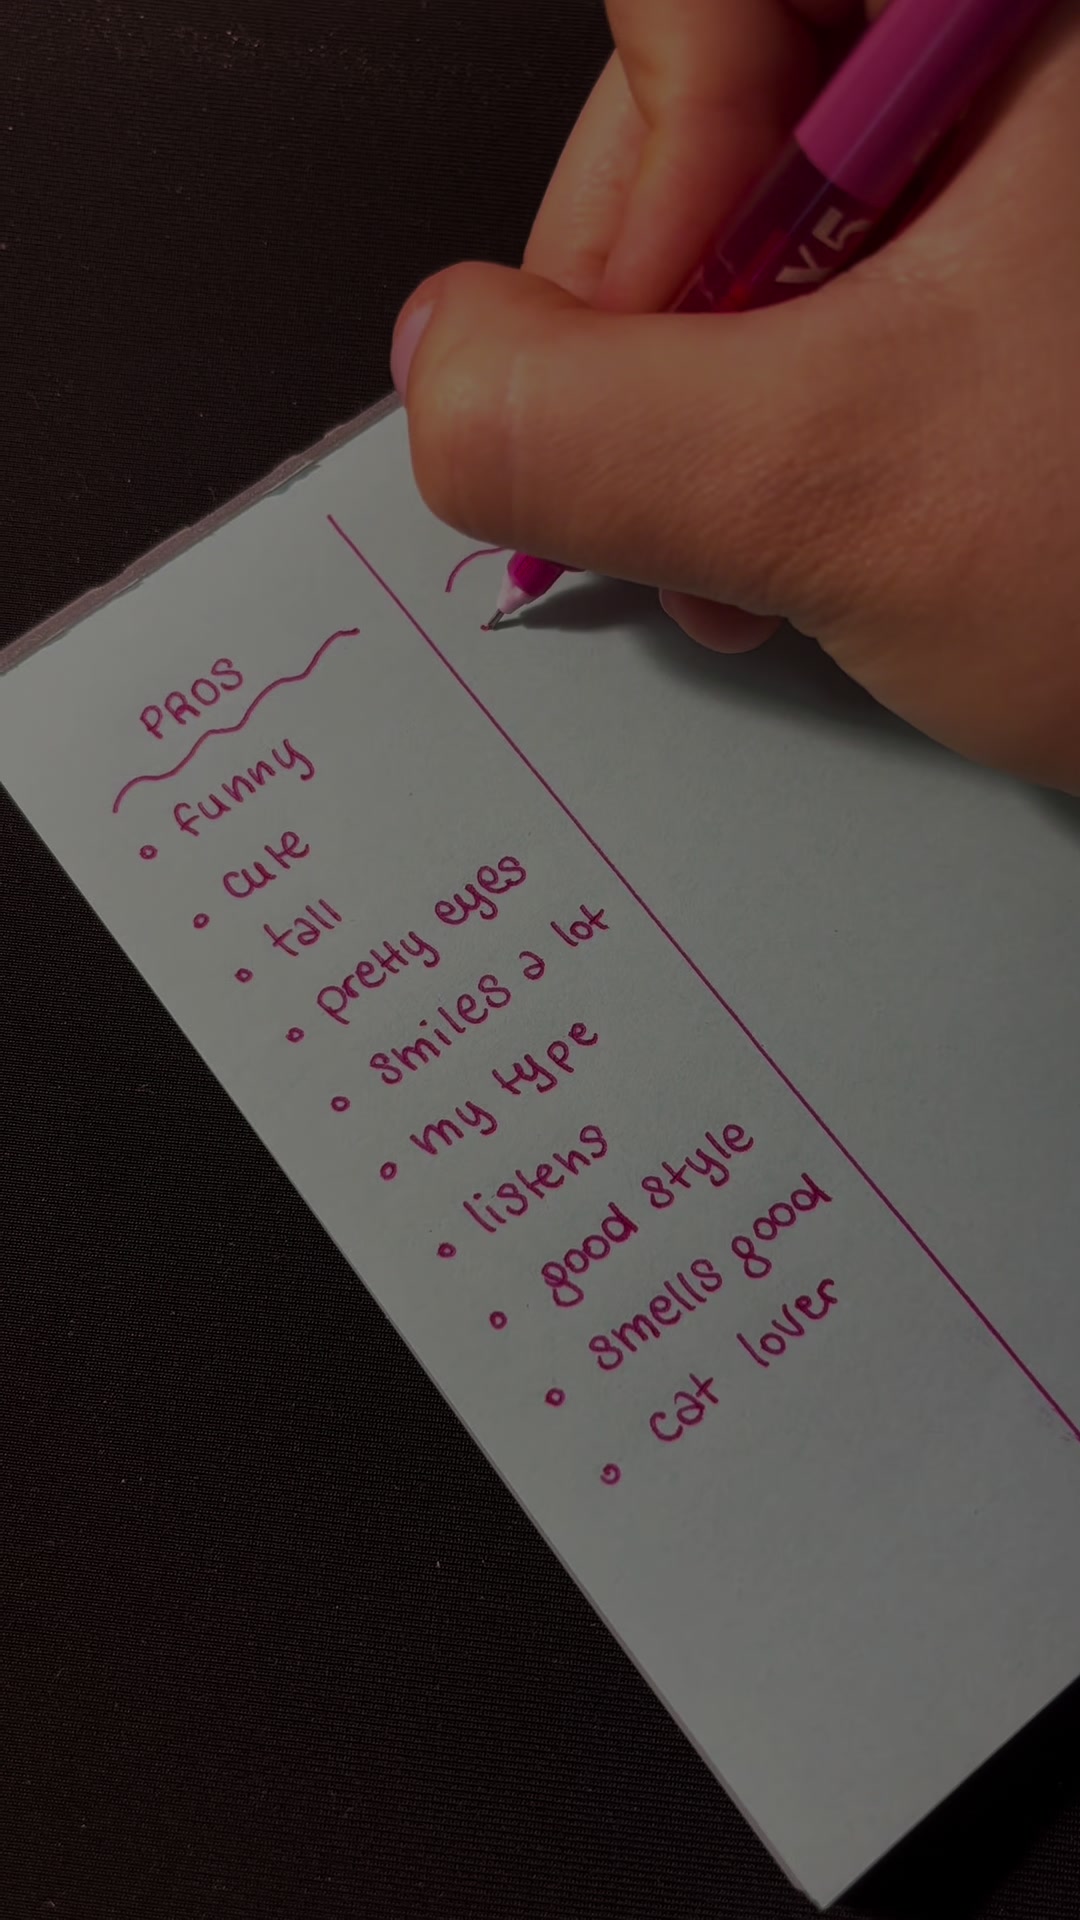 V5
PROS
• funny
• cute
• tall
• pretty eyes
• smiles a lot
• my type
• listens
• good style
• smells good
• cat lover